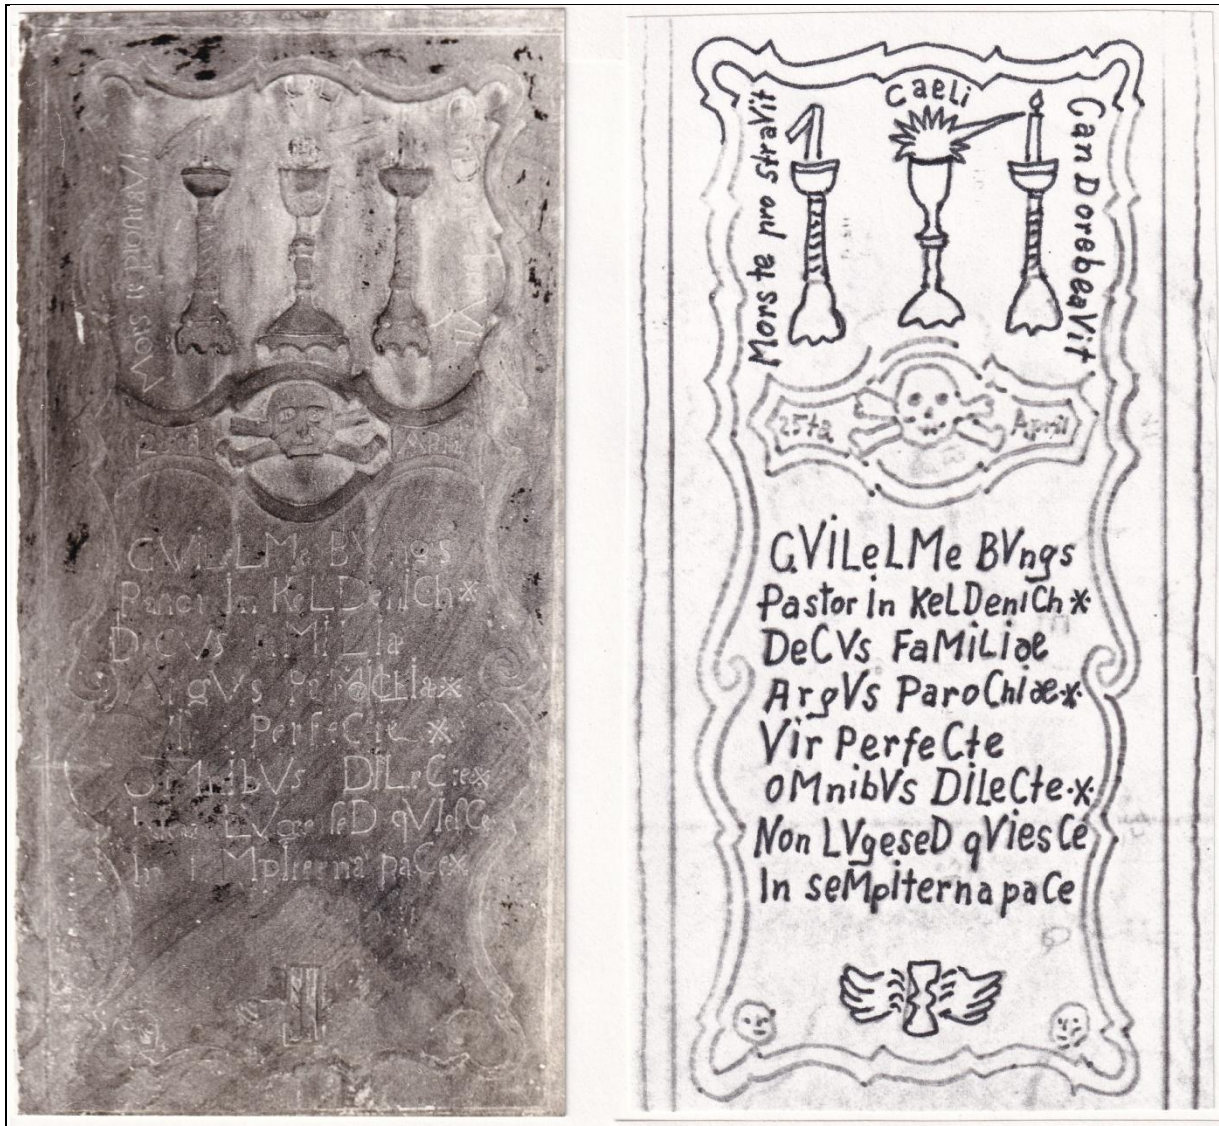 Mors
GVILeLMe BVngs
Pastor In KeLDenICh *
DeCVs
ArgVs
PerfeCte *
OMnibVs DILeCte*
LVge seD qVIesCe
In paCe*
Mors te pro straVit
Caeli
CanDorebeaVit
25ta April
GVILeLMe BVngs
Pastor In KeLDenICh *
DeCVs FaMiLiae
ArgVs ParoChiae.*
Vir PerfeCte
oMnibVs DILeCte.*.
Non LVgeseD qViesCe
In seMpIterna paCe